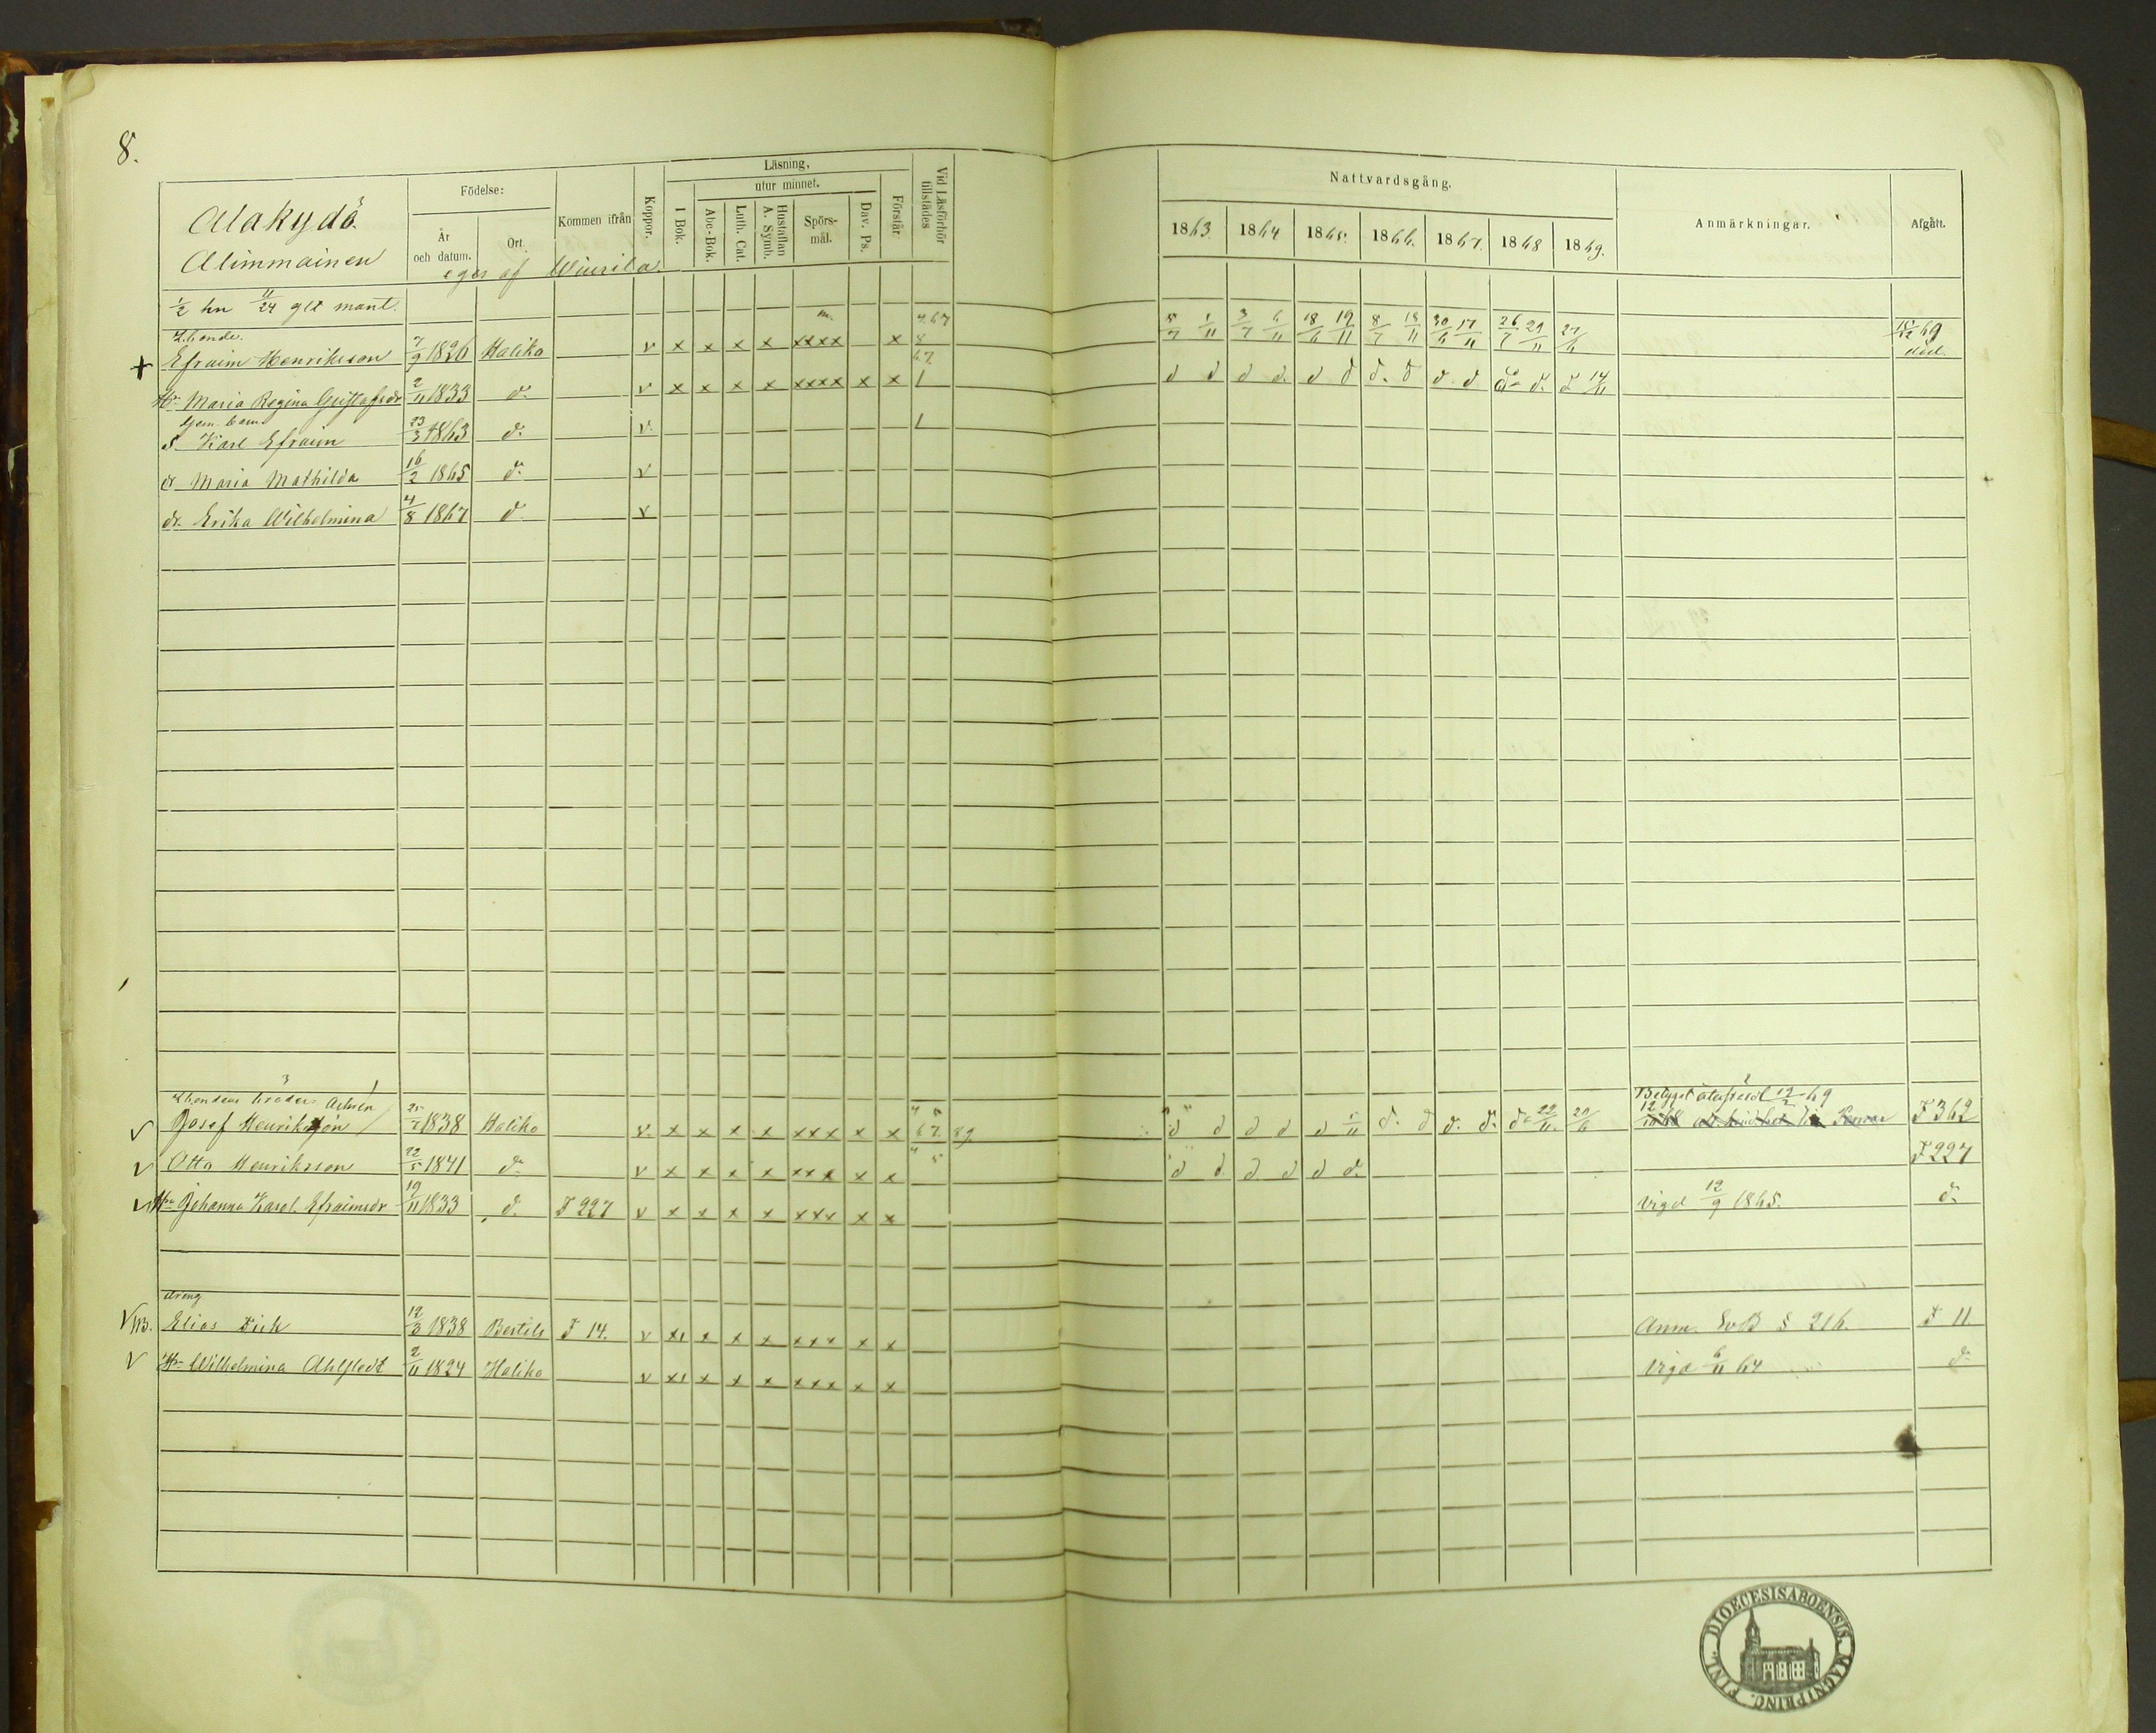 8.
Alakydö.
Alimmainen
eges af Wiurila.
Födelse:
År och datum.
Ort.
Kommen ifrån
Koppor.
Läsning,
utur minnet.
I Bok.
Abc-Bok.
Luth. Cat.
Hustaflan A. Symb.
Spörs-mål.
Dav. Ps.
Förstår.
Vid Läsförhör tillstädes
Nattvardsgång.
1863. 1864 1865. 1866. 1867. 1868 1869.
Anmärkningar.
Afgått.
1/2 hn 11/24 glt mant.
+ Efraim Henriksson 7/9 1826 Haliko v x x x x xxxx x 8 5/7 1/11 3/7 6/11 18/6 19/11 8/7 18/11 30/6 17/11 26/7 29/11 27/6 18/12 69 död.
Hr Maria Regina Gustafsdr 2/11 1833 d:o v x x x x xxxx x x 1 d d d d. d d d. d d d d. 14/11
Gem. barn
s. Karl Efraim 23/3 1863 d:o v. 1
dr Maria Mathilda 16/2 1865 d:o v
dr. Erika Wilhelmina 4/8 1867 d v
Josef Henriksson 25/7 1838 Haliko v. x x x x xxx x x 67. 89 d d d d d 5/11 d. d d. d. d:o 22/11 29/6 12/2 69 F 362
v Otto Henriksson 22/5 1841 d:o v x x x x xxx x x d d d d d d. F 227
v Hr Johanna Karol. Efraimsdr 19/11 1833 d. F 227 v x x x x xxx x x Vigd 12/9 1865. d:o
dreng
v NB. Elias Dick 12/3 1838 Bertils F 14. v xx x x x xxx x x Anm. SvB § 216. F 11
v Hr Wilhelmina Ahlstedt 2/11 1824 Haliko v xx x x x xxx x x Vigd 6/11 64 d:o
FINL. DIOECESIS ABOENSIS MAGNI PRINC.